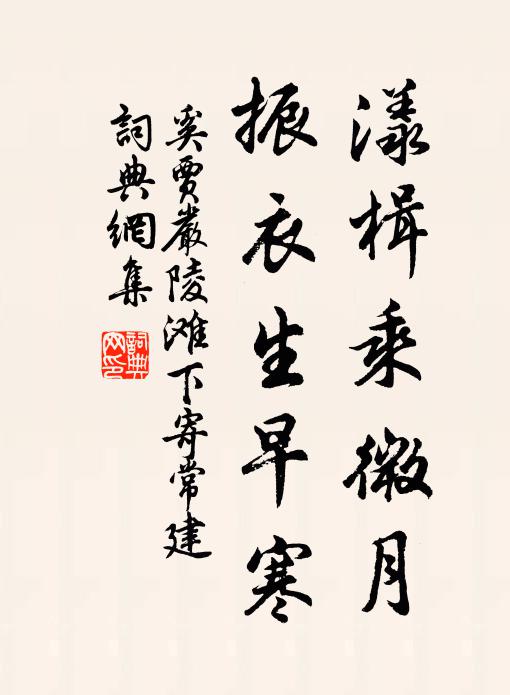 漾楫乘微月
振衣生早寒
奚賈嚴陵滩下寄常建
詞典網集
詞典网印